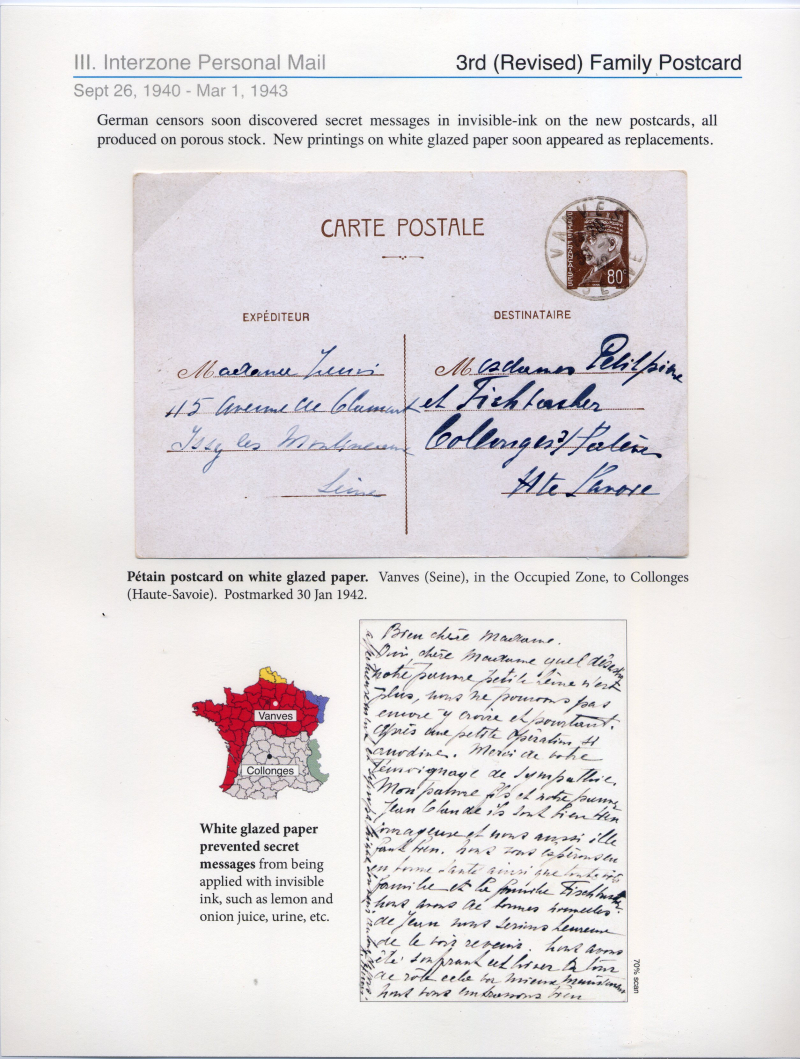 III. Interzone Personal Mail
3rd (Revised) Family Postcard
Sept 26, 1940 - Mar 1, 1943
German censors soon discovered secret messages in invisible-ink on the new postcards, all
produced on porous stock. New printings on white glazed paper soon appeared as replacements.
CARTE POSTALE
VANVES
SEINE
POSTES FRANÇAISES
80c
EXPÉDITEUR
DESTINATAIRE
Madame
45 Avenue de
Issy les Moulineaux
Seine
Mesdames Petitpierre
et
Collonges s/
Hte Savoie
Pétain postcard on white glazed paper. Vanves (Seine), in the Occupied Zone, to Collonges
(Haute-Savoie). Postmarked 30 Jan 1942.
Vanves
Collonges
White glazed paper
prevented secret
messages from being
applied with invisible
ink, such as lemon and
onion juice, urine, etc.
Bien chère Madame.
Oui chère Madame quel
notre pauvre petite n'est
plus, nous ne pouvons pas
encore y croire et pourtant.
après une petite opération si
anodine. Merci de votre
témoignage de sympathie.
Mon pauvre fils et notre pauvre
Jean Claude ils sont bien
courageux et nous aussi il le
faut bien. nous vous espérons en
en bonne santé ainsi que toute votre
famille et la famille
nous avons de bonnes nouvelles
de Jean nous serions heureux
de le voir revenir. nous avons
été souffrant cet hiver
de rôle cela va mieux maintenant
nous vous embrassons bien
70% scan